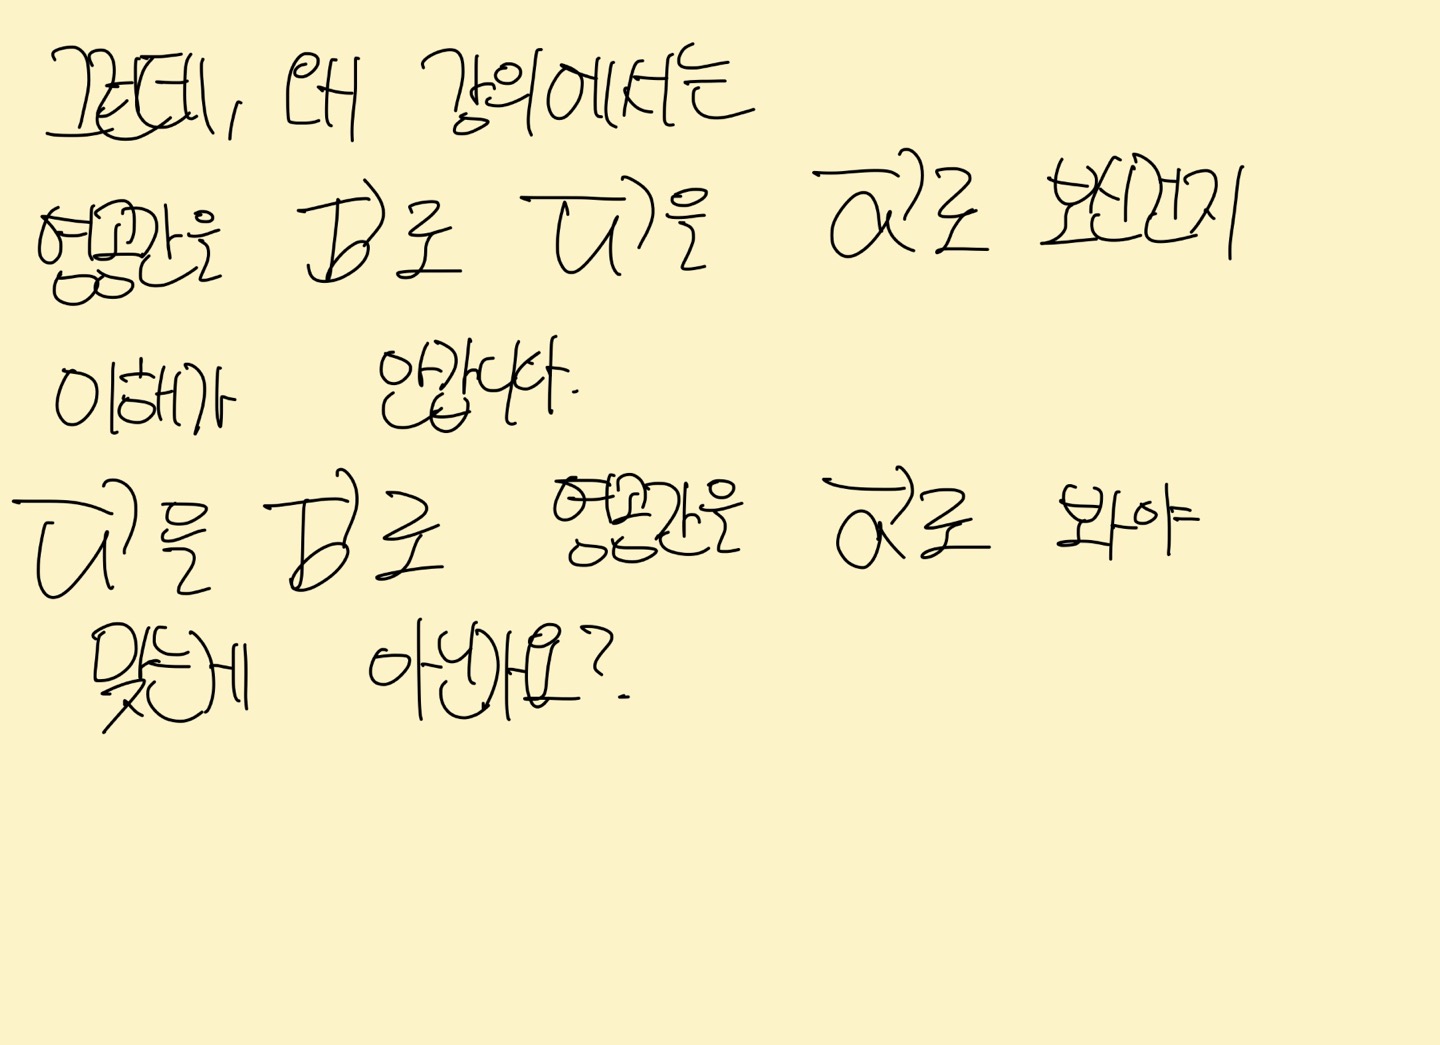 그런데, 왜 강의에서는
영공간을 b→로 u→을 a→로 보신건지
이해가 안갑니다.
u→을 b→로 영공간을 a→로 봐야
맞는게 아닌가요?